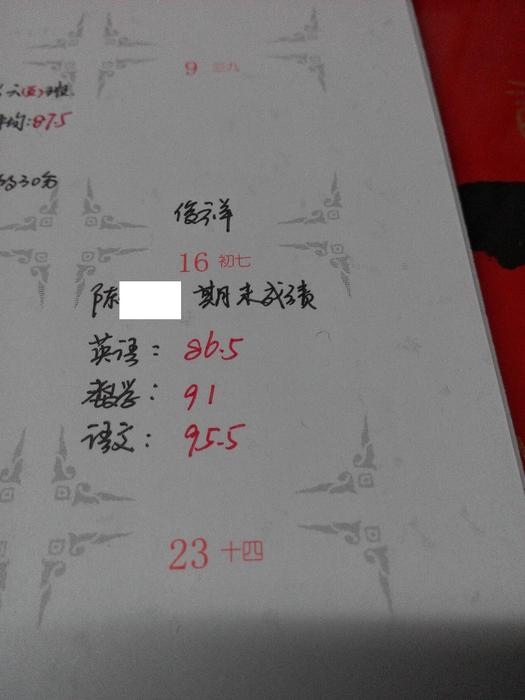 9
六(五)班
平均:87.5
30分
俊祥
16 初七
陈 期末成绩
英语: 86.5
数学: 91
语文: 95.5
23 十四